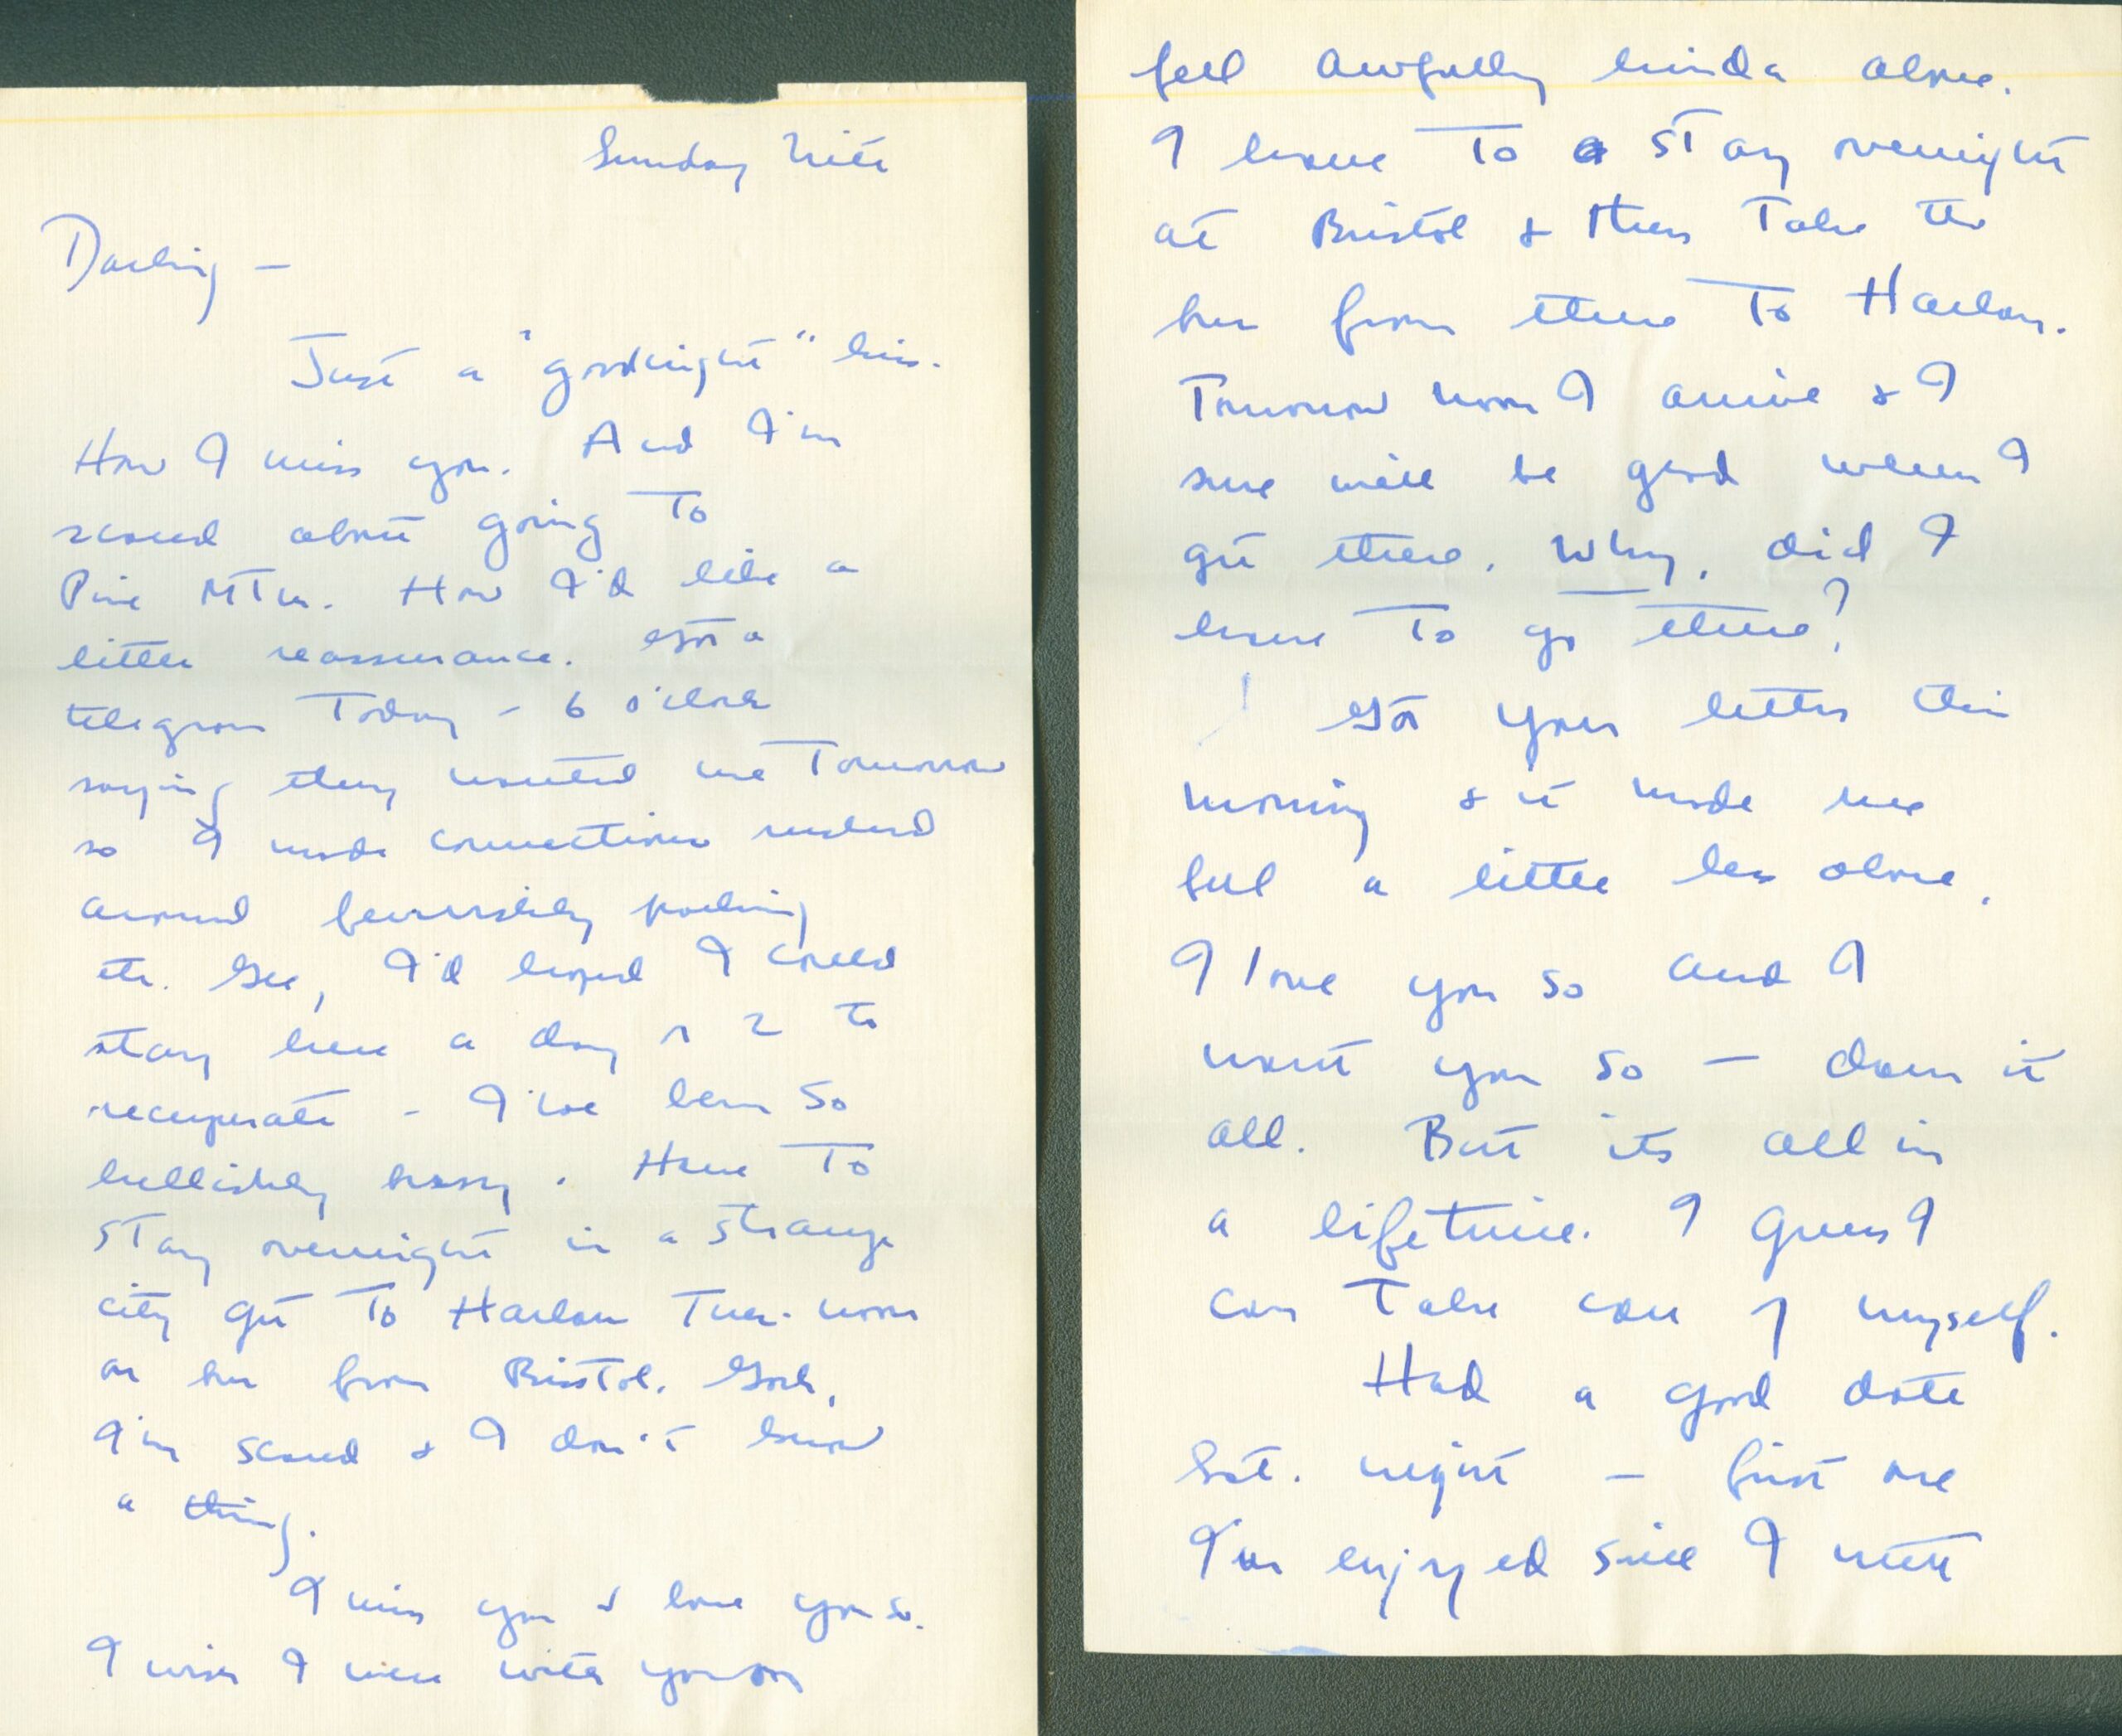 Sunday Nite
Darling —
Just a "goodnight" kiss.
How I miss you. And I'm
scared about going to
Pine Mtn. How I'd like a
little reassurance. Got a
telegram today - 6 o'clock
saying they wanted me tomorrow
so I made connections rushed
around feverishly packing
etc. Gee, I'd hoped I could
stay here a day or 2 to
recuperate - I've been so
hellishly busy. Have to
stay overnight in a strange
city get to Harlan Tues. noon
on bus from Bristol. Gosh,
I'm scared & I don't know
a thing.
I miss you & love you so.
I wish I were with you
feel awfully kinda alone.
I have to stay overnight
at Bristol & then take the
bus from there to Harlan.
Tomorrow noon I arrive & I
sure will be glad when I
get there. Why, did I
have to go there?
Got your letter this
morning & it made me
feel a little less alone.
I love you so and I
want you so — damn it
all. But its all in
a lifetime. I guess I
can take care of myself.
Had a good date
Sat. night — first one
I've enjoyed since I met